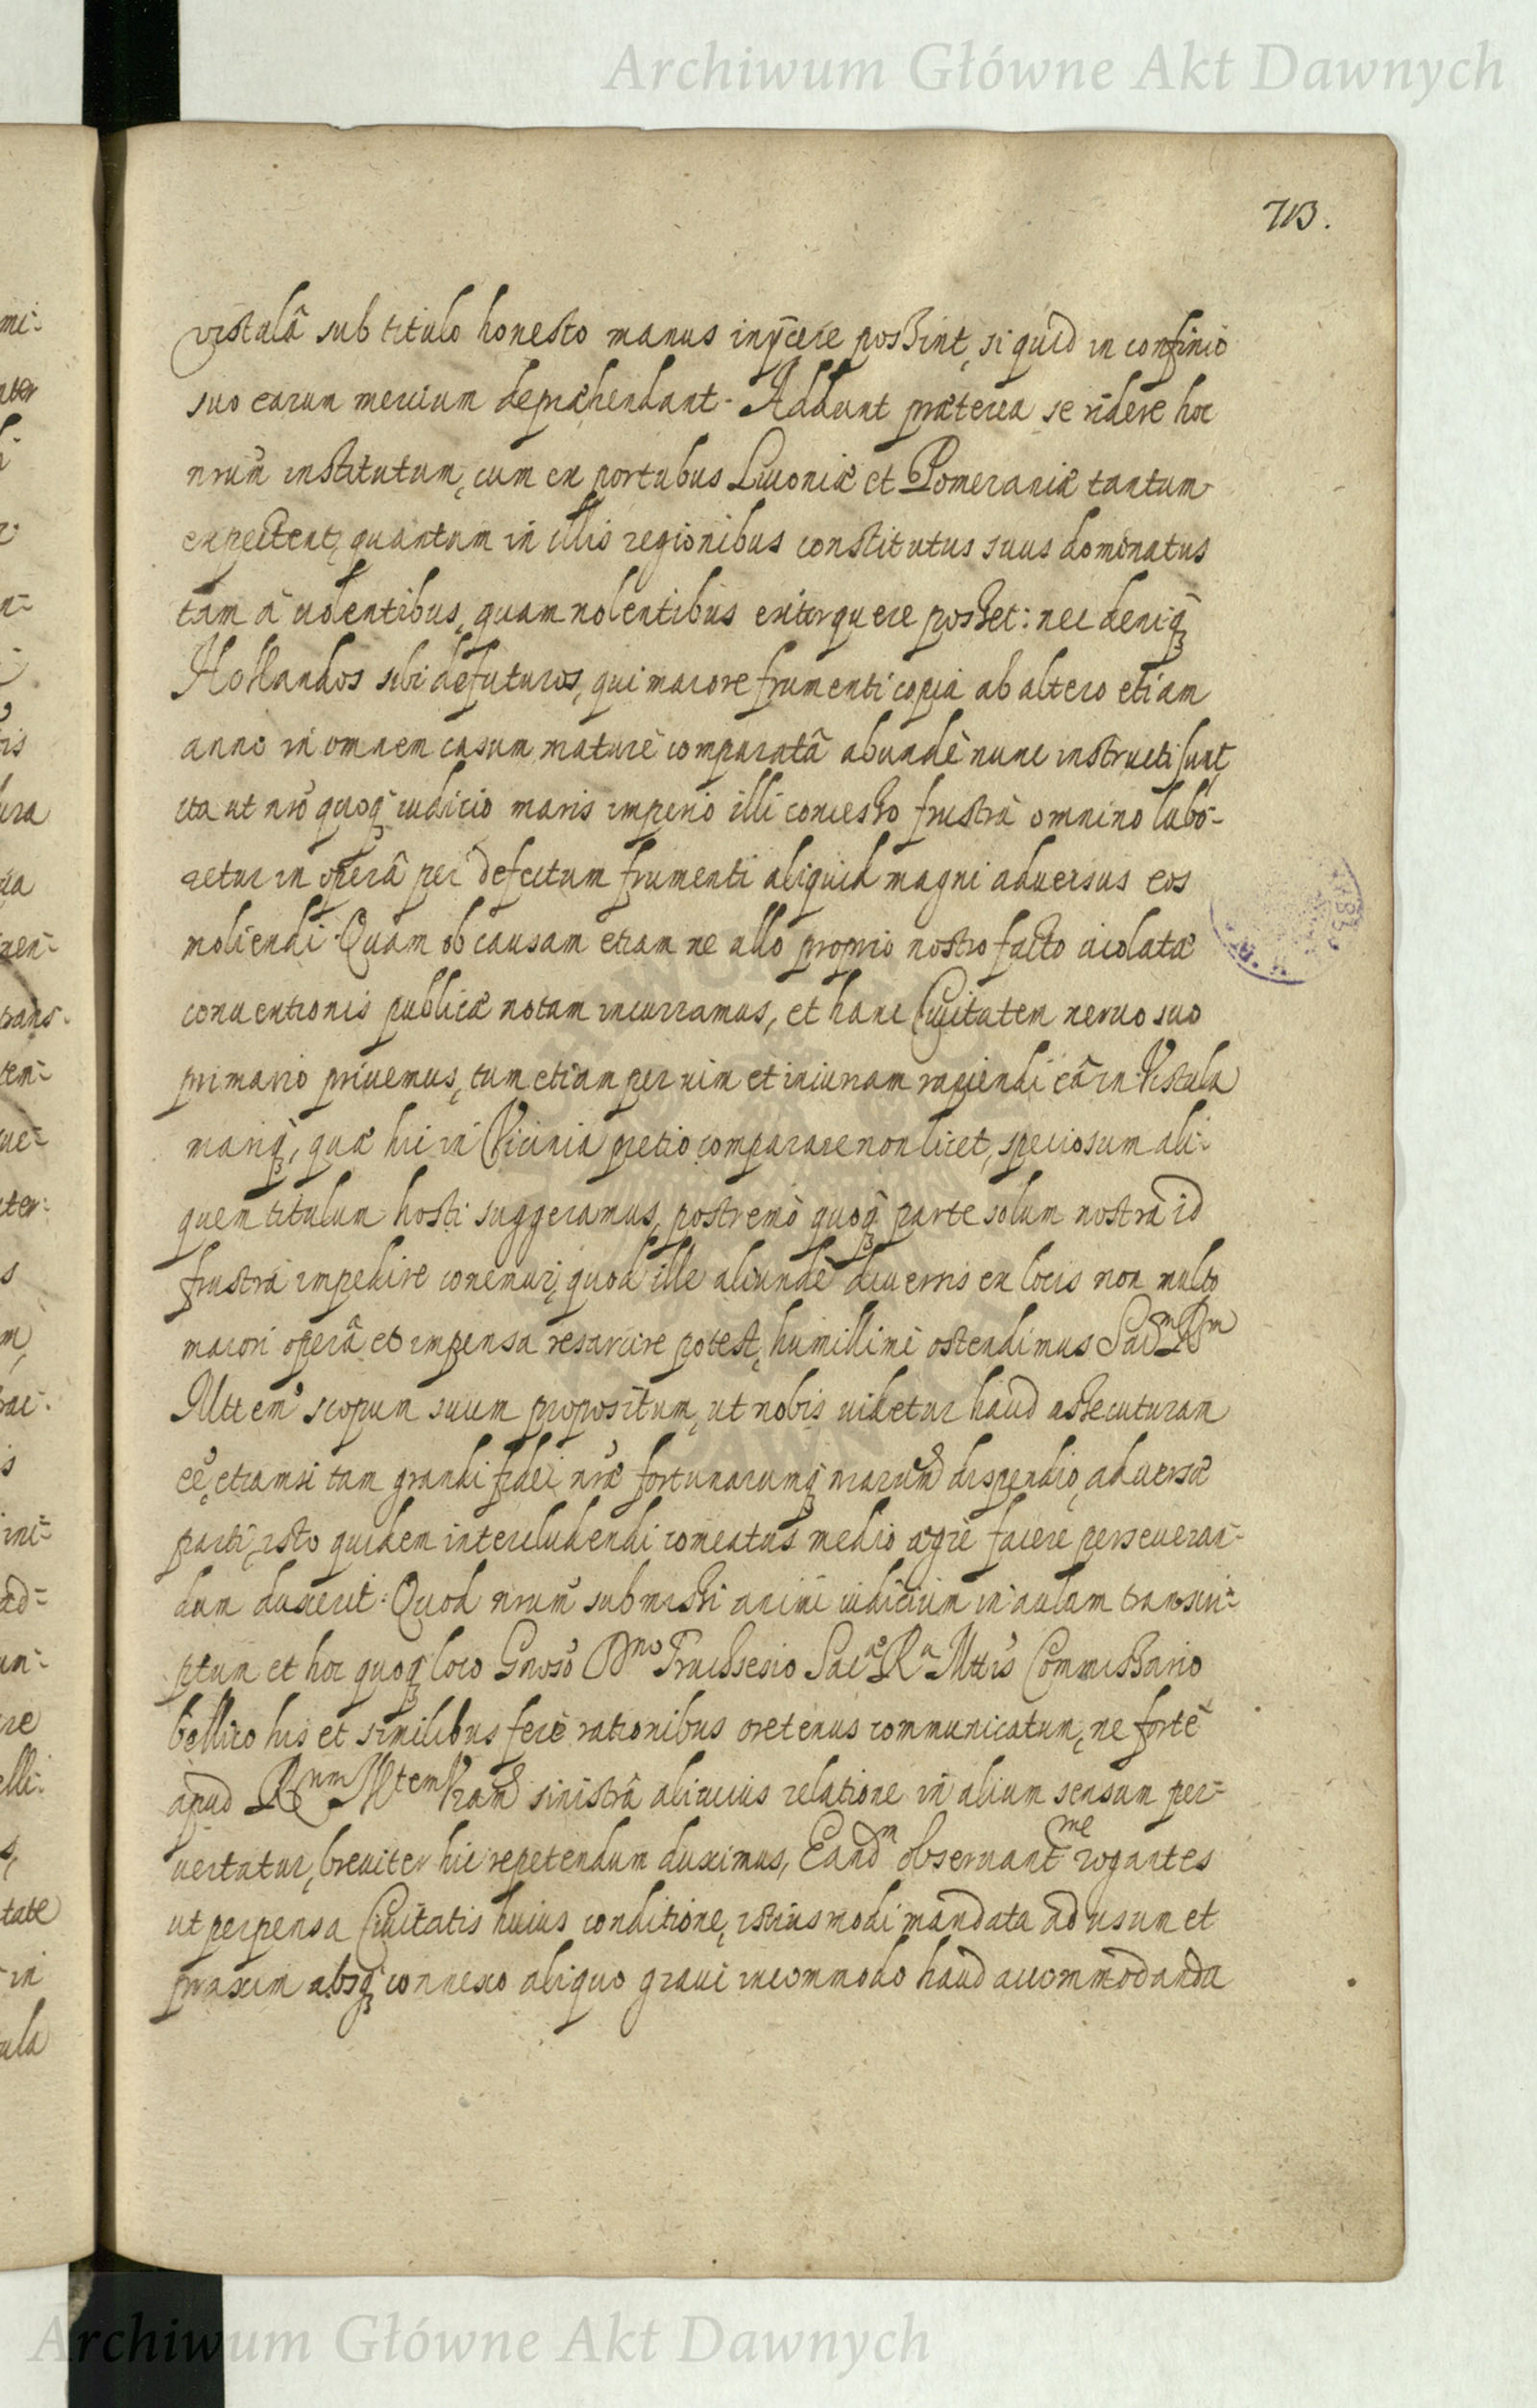 Archiwum Główne Akt Dawnych
713.
vistulâ sub titulo honesto manus inÿcere possint, si quid in confinio
suo earum mercium depræhendant. Addunt præterea se ridere hoc
nrum̃ institutum, cum ex portubus Livoniæ et Pomeraniæ tantum
expectent, quantum in illis regionibus constitutus suus dominatus
tàm à volentibus, quam nolentibus extorquere posset: nec deniq̃
Hollandos sibi defuturos, qui maiore frumenti copia ab altero etiam
anno in omnem casum maturè comparatâ abundè nunc instructi sunt
ita ut nrõ quoq̃ iudicio maris imperio illi concesso frustrà omnino labo-
retur in operâ per defectum frumenti aliquid magni adversus eos
moliendi. Quam ob causam etiam ne ullo proprio nostro facto violatæ
conventionis publicæ notam incurramus, et hanc Civitatem nervo suo
primario privemus, tum etiam per vim et iniuriam rapiendi eâ in Vistula
mariq̃, quæ hic in Vicinia pretio comparare non licet, speciosum ali-
quem titulum hosti suggeramus, postremò quoq̃ parte solum nostra id
frustrà impedire conemur, quod ille aliundè diversis ex locis non multo
maiori operâ et impensa resarcire potest, humillimè ostendimus Sacᵐ Rᵐ
Mttem̃ scopum suum propositum, ut nobis videtur haud assecuturam
eẽ, etiamsi tam grandi fidei nr̃æ fortunarumq̃ nrarum̃ dispendio, adversæ
parti, isto quidem intercludendi comeatus medio ægrè facere perseveran-
dum duxerit. Quod nrum̃ submissi animi iudicium in aulam transcri-
ptum et hoc quoq̃ loco Gnoso͂ Dno Truchsesio Sacæ Ra Mttis Commissario
bellico his et similibus ferè rationibus oretenus communicatum, ne fortè
apud Rnm Mtem Vram̃ sinistrâ alicuius relatione in alium sensum per-
vertatur, breviter hic repetendum duximus, Eandᵐ observantme rogantes
ut perpensa Civitatis huius conditione, istiusmodi mandata ad usum et
praxim absq̃ connexo aliquo gravi incommodo haud accommodanda
Archiwum Główne Akt Dawnych